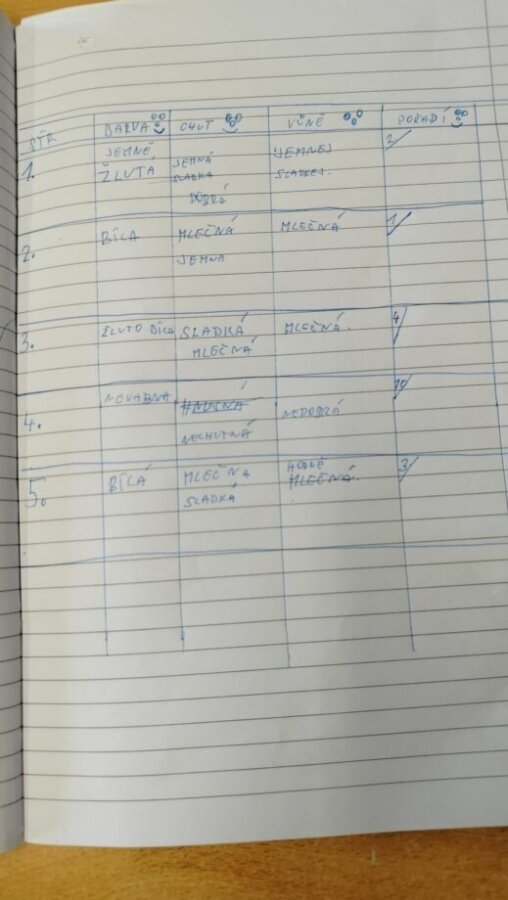 SÝR BARVA CHUŤ VŮNĚ POŘADÍ
1. JEMNĚ ŽLUTÁ
JEMNÁ
SLADKÁ
DOBRÁ
JEMNEJ
SLADKEJ
2/
2. BÍLA
MLEČNÁ
JEMNA
MLEČNÁ
1/
3. ŽLUTO BÍLA
SLADKÁ
MLEČNÁ
MLEČNÁ.
4/
4.
NECHUTNÁ
NEDOBRÁ
10/
5. BÍLÁ
MLEČNA
SLADKÁ
HODNĚ
MLEČNÁ.
3/